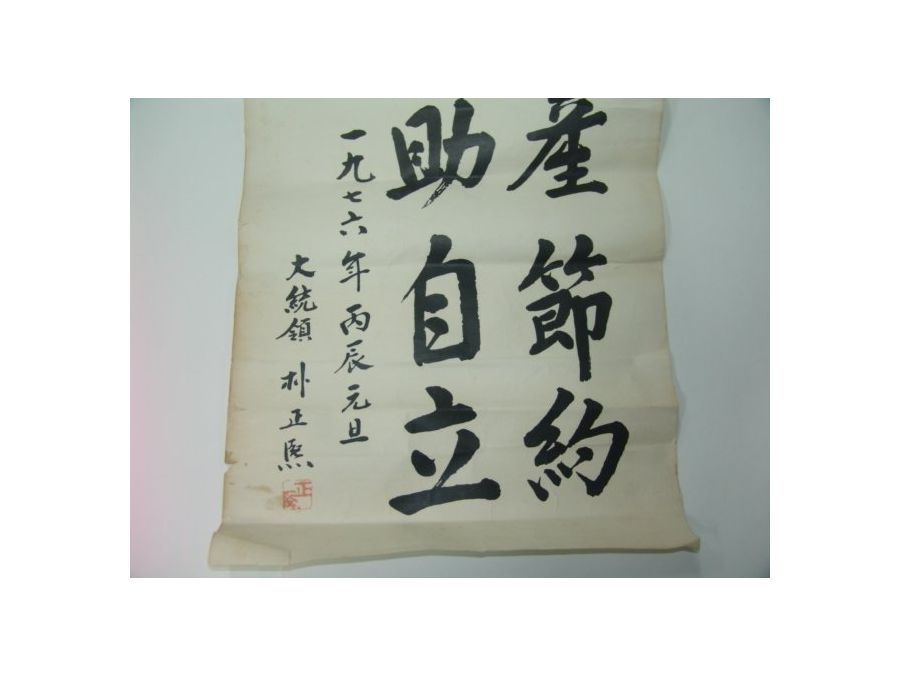 産節約
助自立
一九七六年丙辰元旦
大統領朴正熙